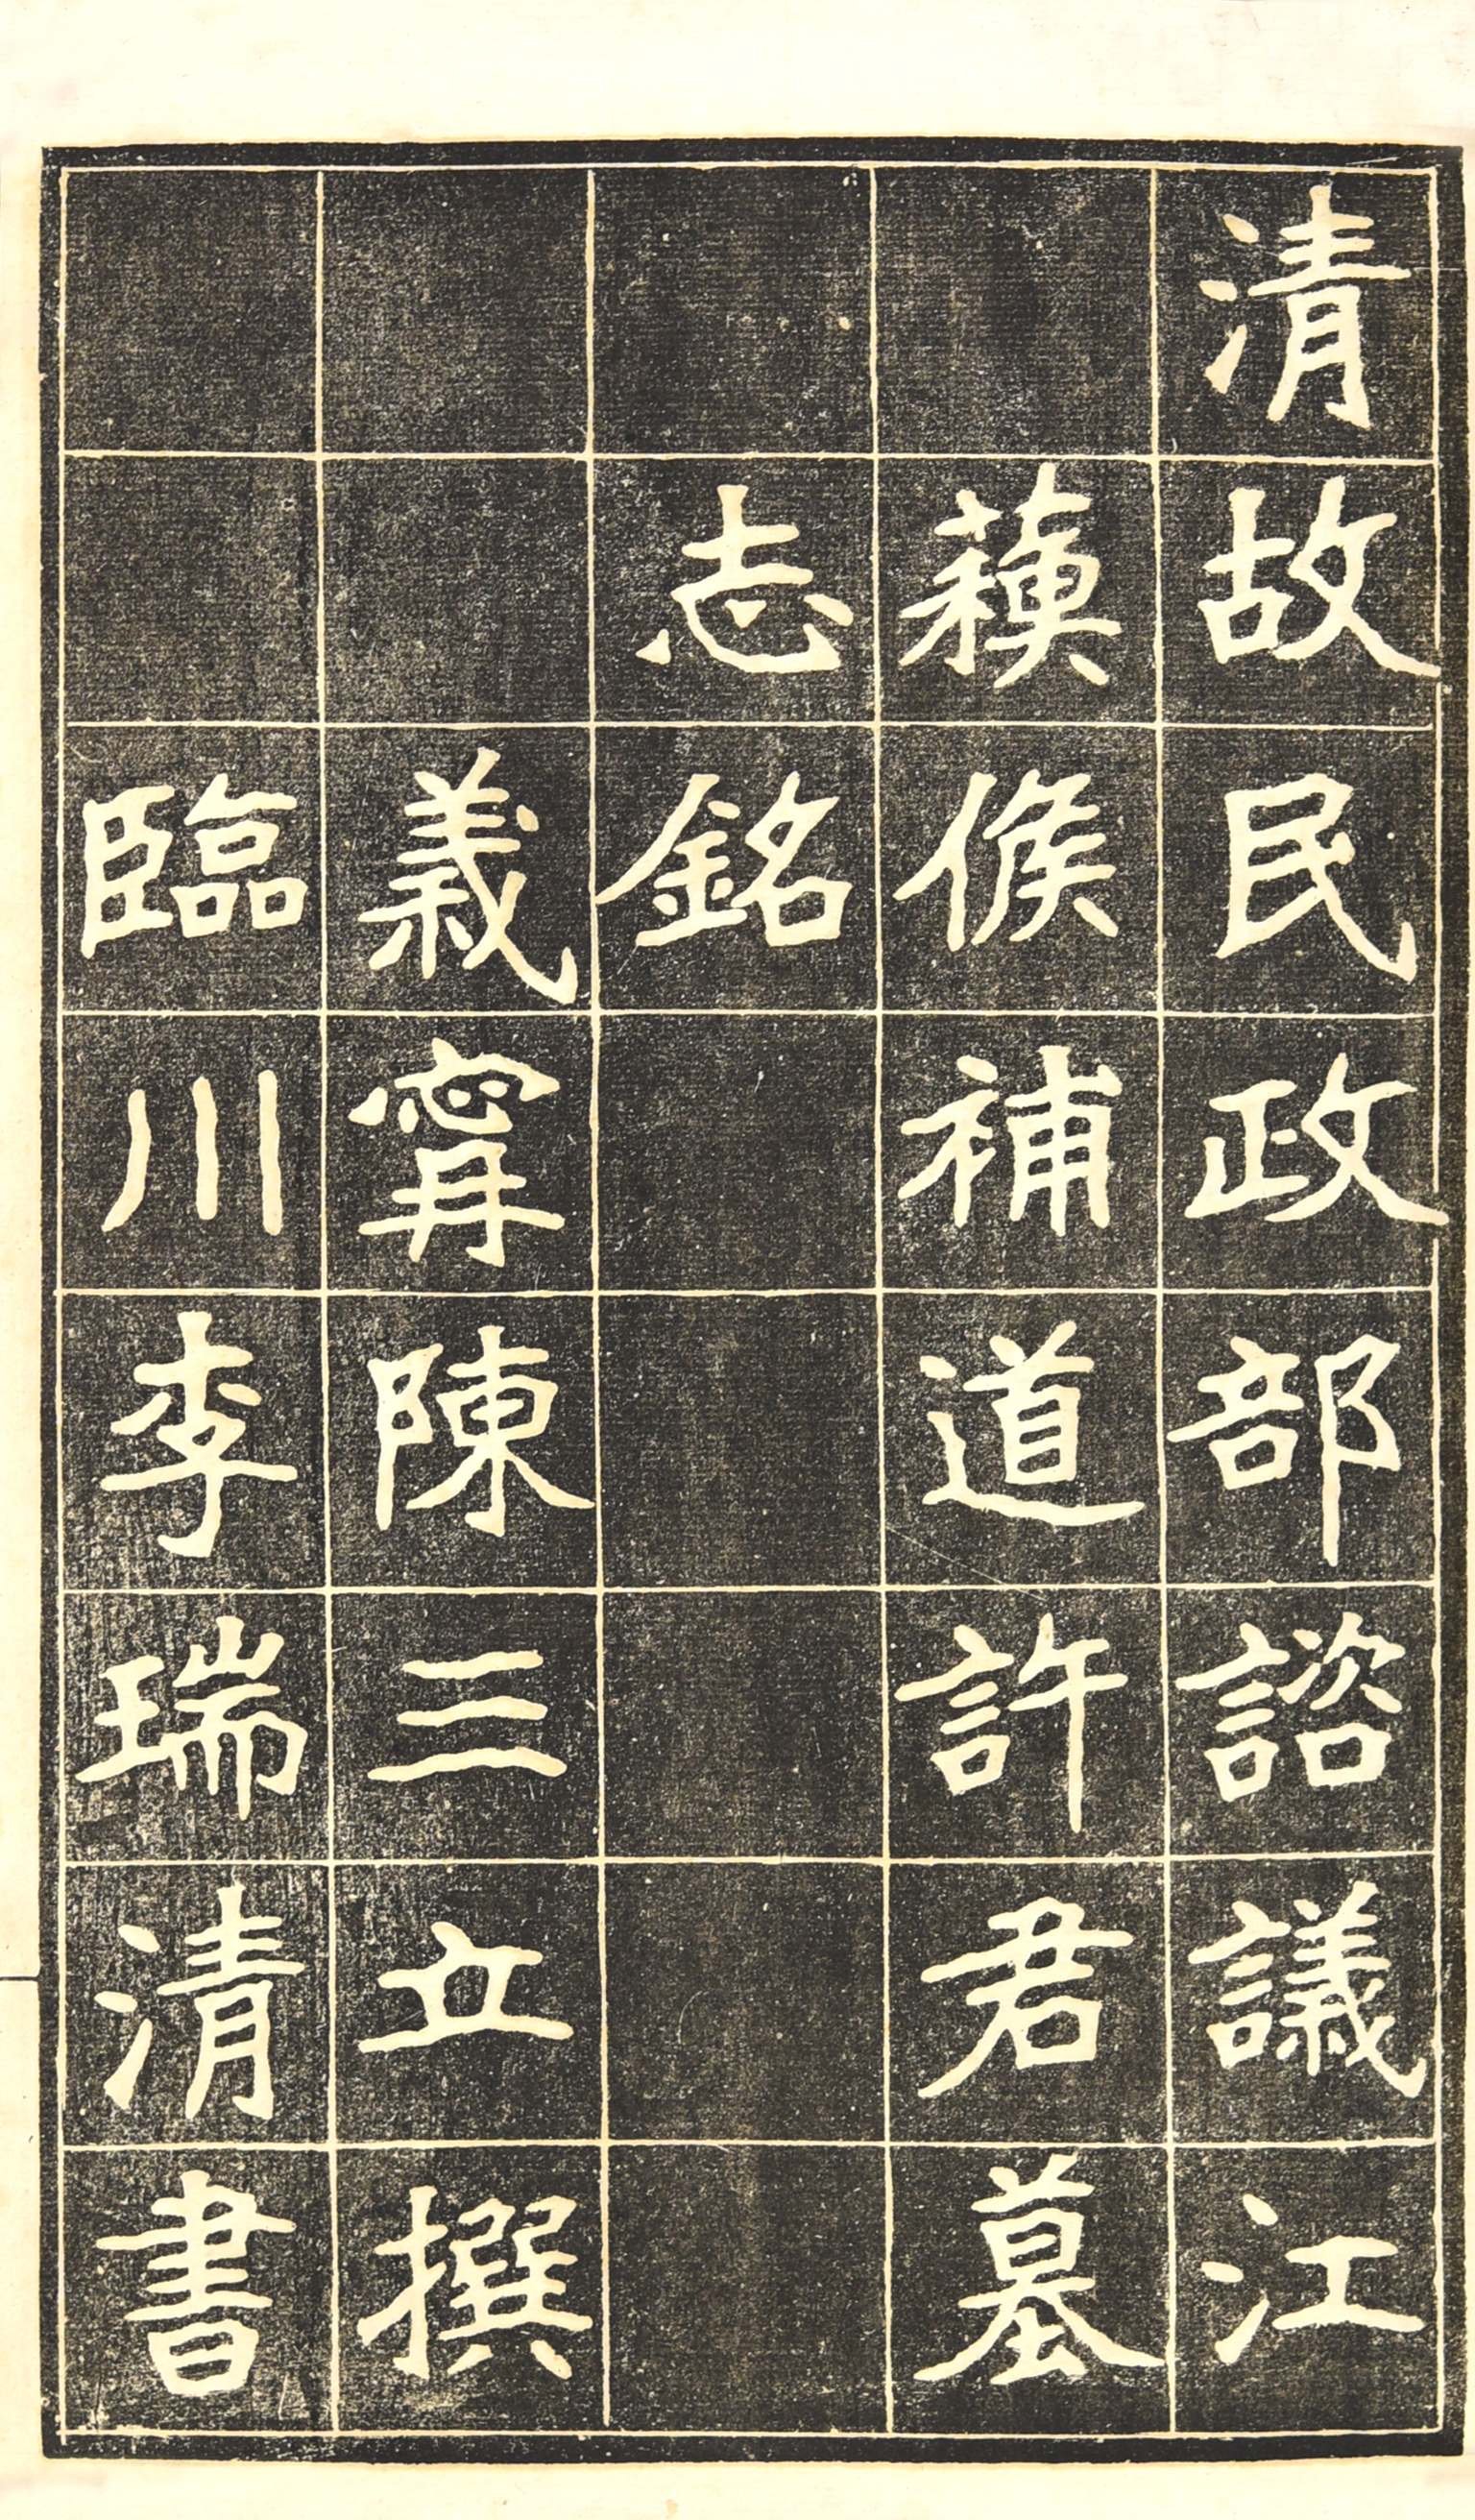 清故民政部諮議江
蘓候補道許君墓
志銘
義寗陳三立撰
臨川李瑞清書